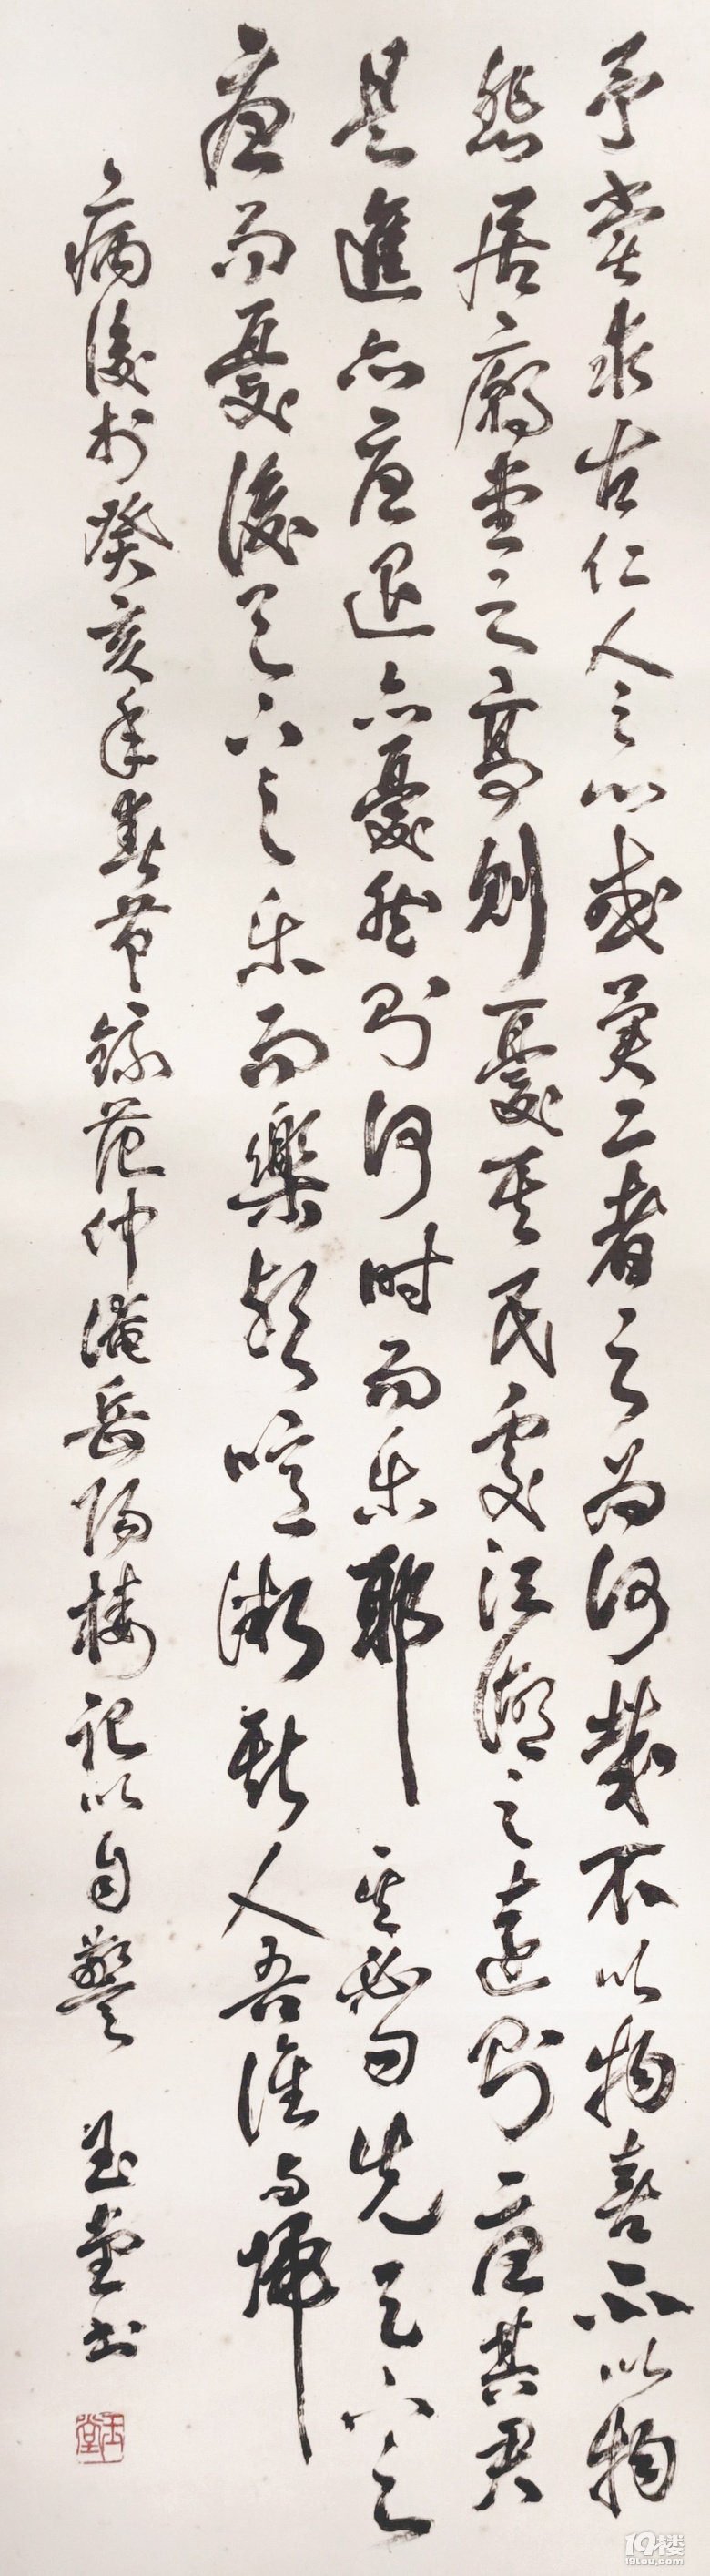 予嘗求古仁人之心或異二者之为何哉不以物喜不以物
悲居廟堂之高則憂其民處江湖之遠則憂其君
是進亦憂退亦憂然則何時而乐耶其必曰先天下之
憂而憂後天下之乐而樂歟噫微斯人吾誰与歸
病後於癸亥年春节錄范仲淹岳陽楼記以自警 玉堂书
玉堂
19楼
19lou.com